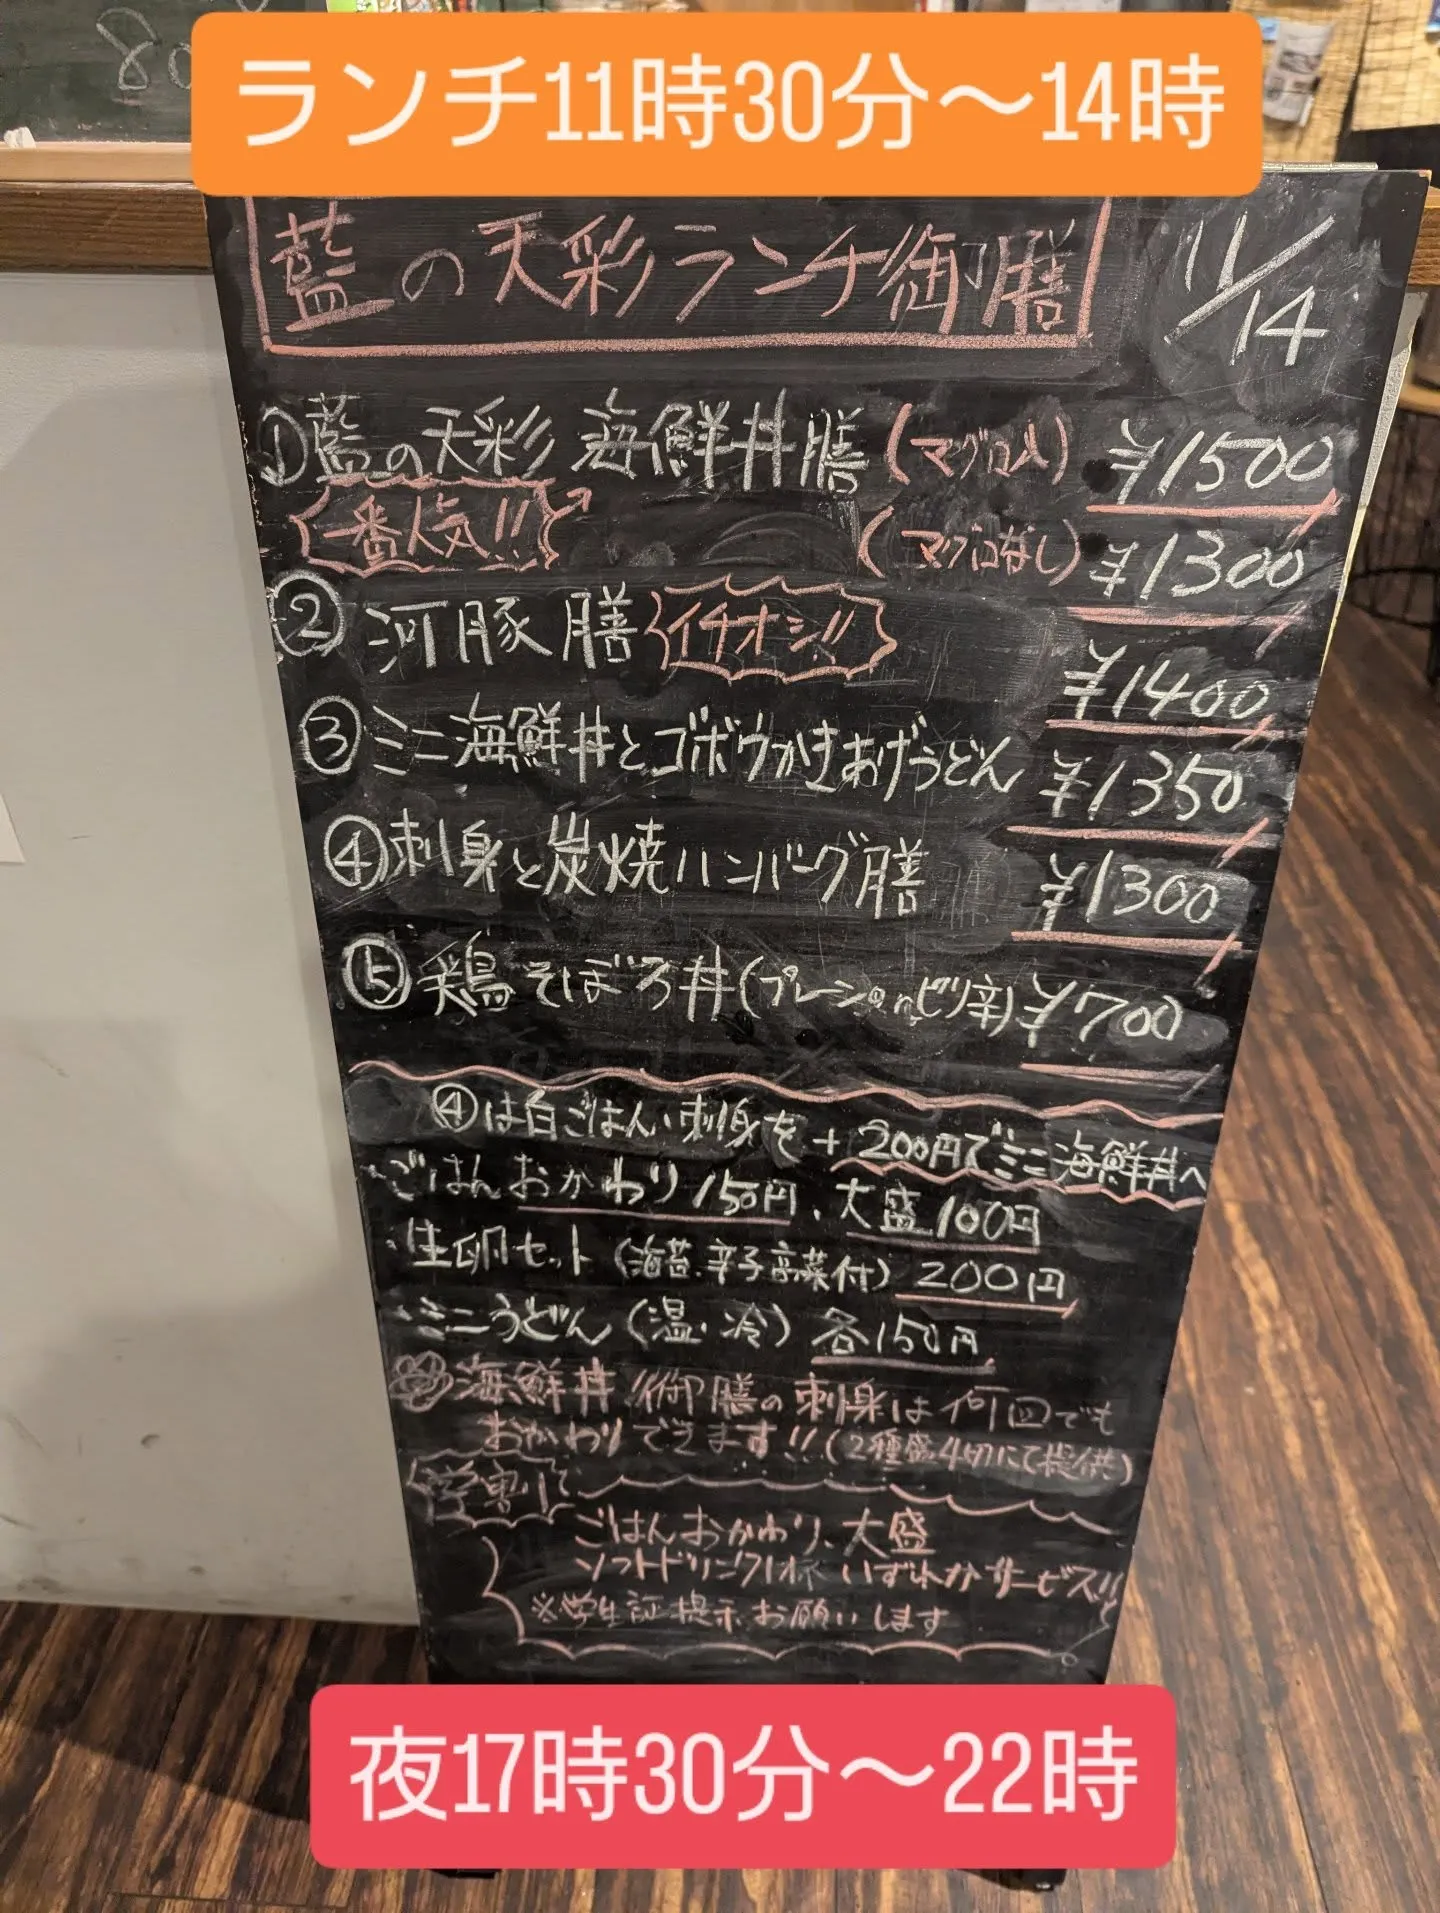 80
ランチ11時30分〜14時
藍の天彩ランチ御膳
11/14
①藍の天彩 海鮮丼膳(マグロ入) ¥1500
一番人気!! (マグロなし) ¥1300
②河豚膳 イチオシ!! ¥1400
③ミニ海鮮丼とゴボウかきあげうどん ¥1350
④刺身と炭焼ハンバーグ膳 ¥1300
⑤鶏そぼろ丼(プレーンorピリ辛) ¥700
④は白ごはん、刺身を+200円でミニ海鮮丼へ
・ごはんおかわり150円、大盛100円
・生卵セット(海苔、辛子高菜付)200円
・ミニうどん(温・冷)各150円
海鮮丼、御膳の刺身は何回でも
おかわりできます!!(2種盛4切にて提供)
学割で
ごはんおかわり、大盛
ソフトドリンク1杯 いずれかサービス!!
※学生証提示お願いします
夜17時30分〜22時